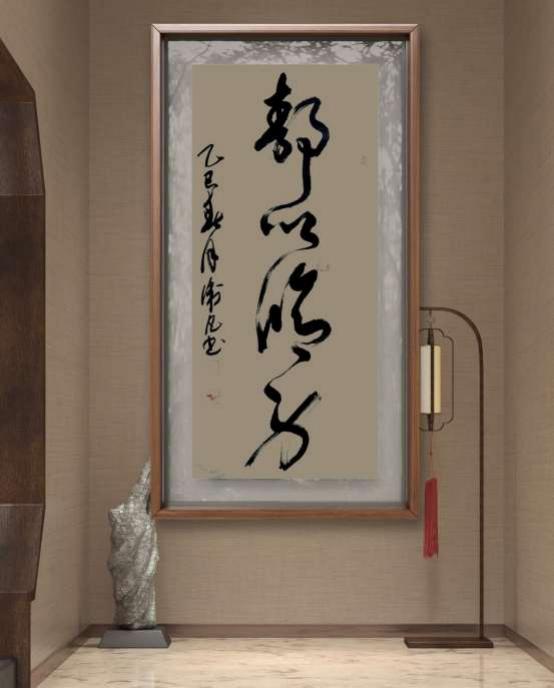 静以修身
乙巳春月凡书